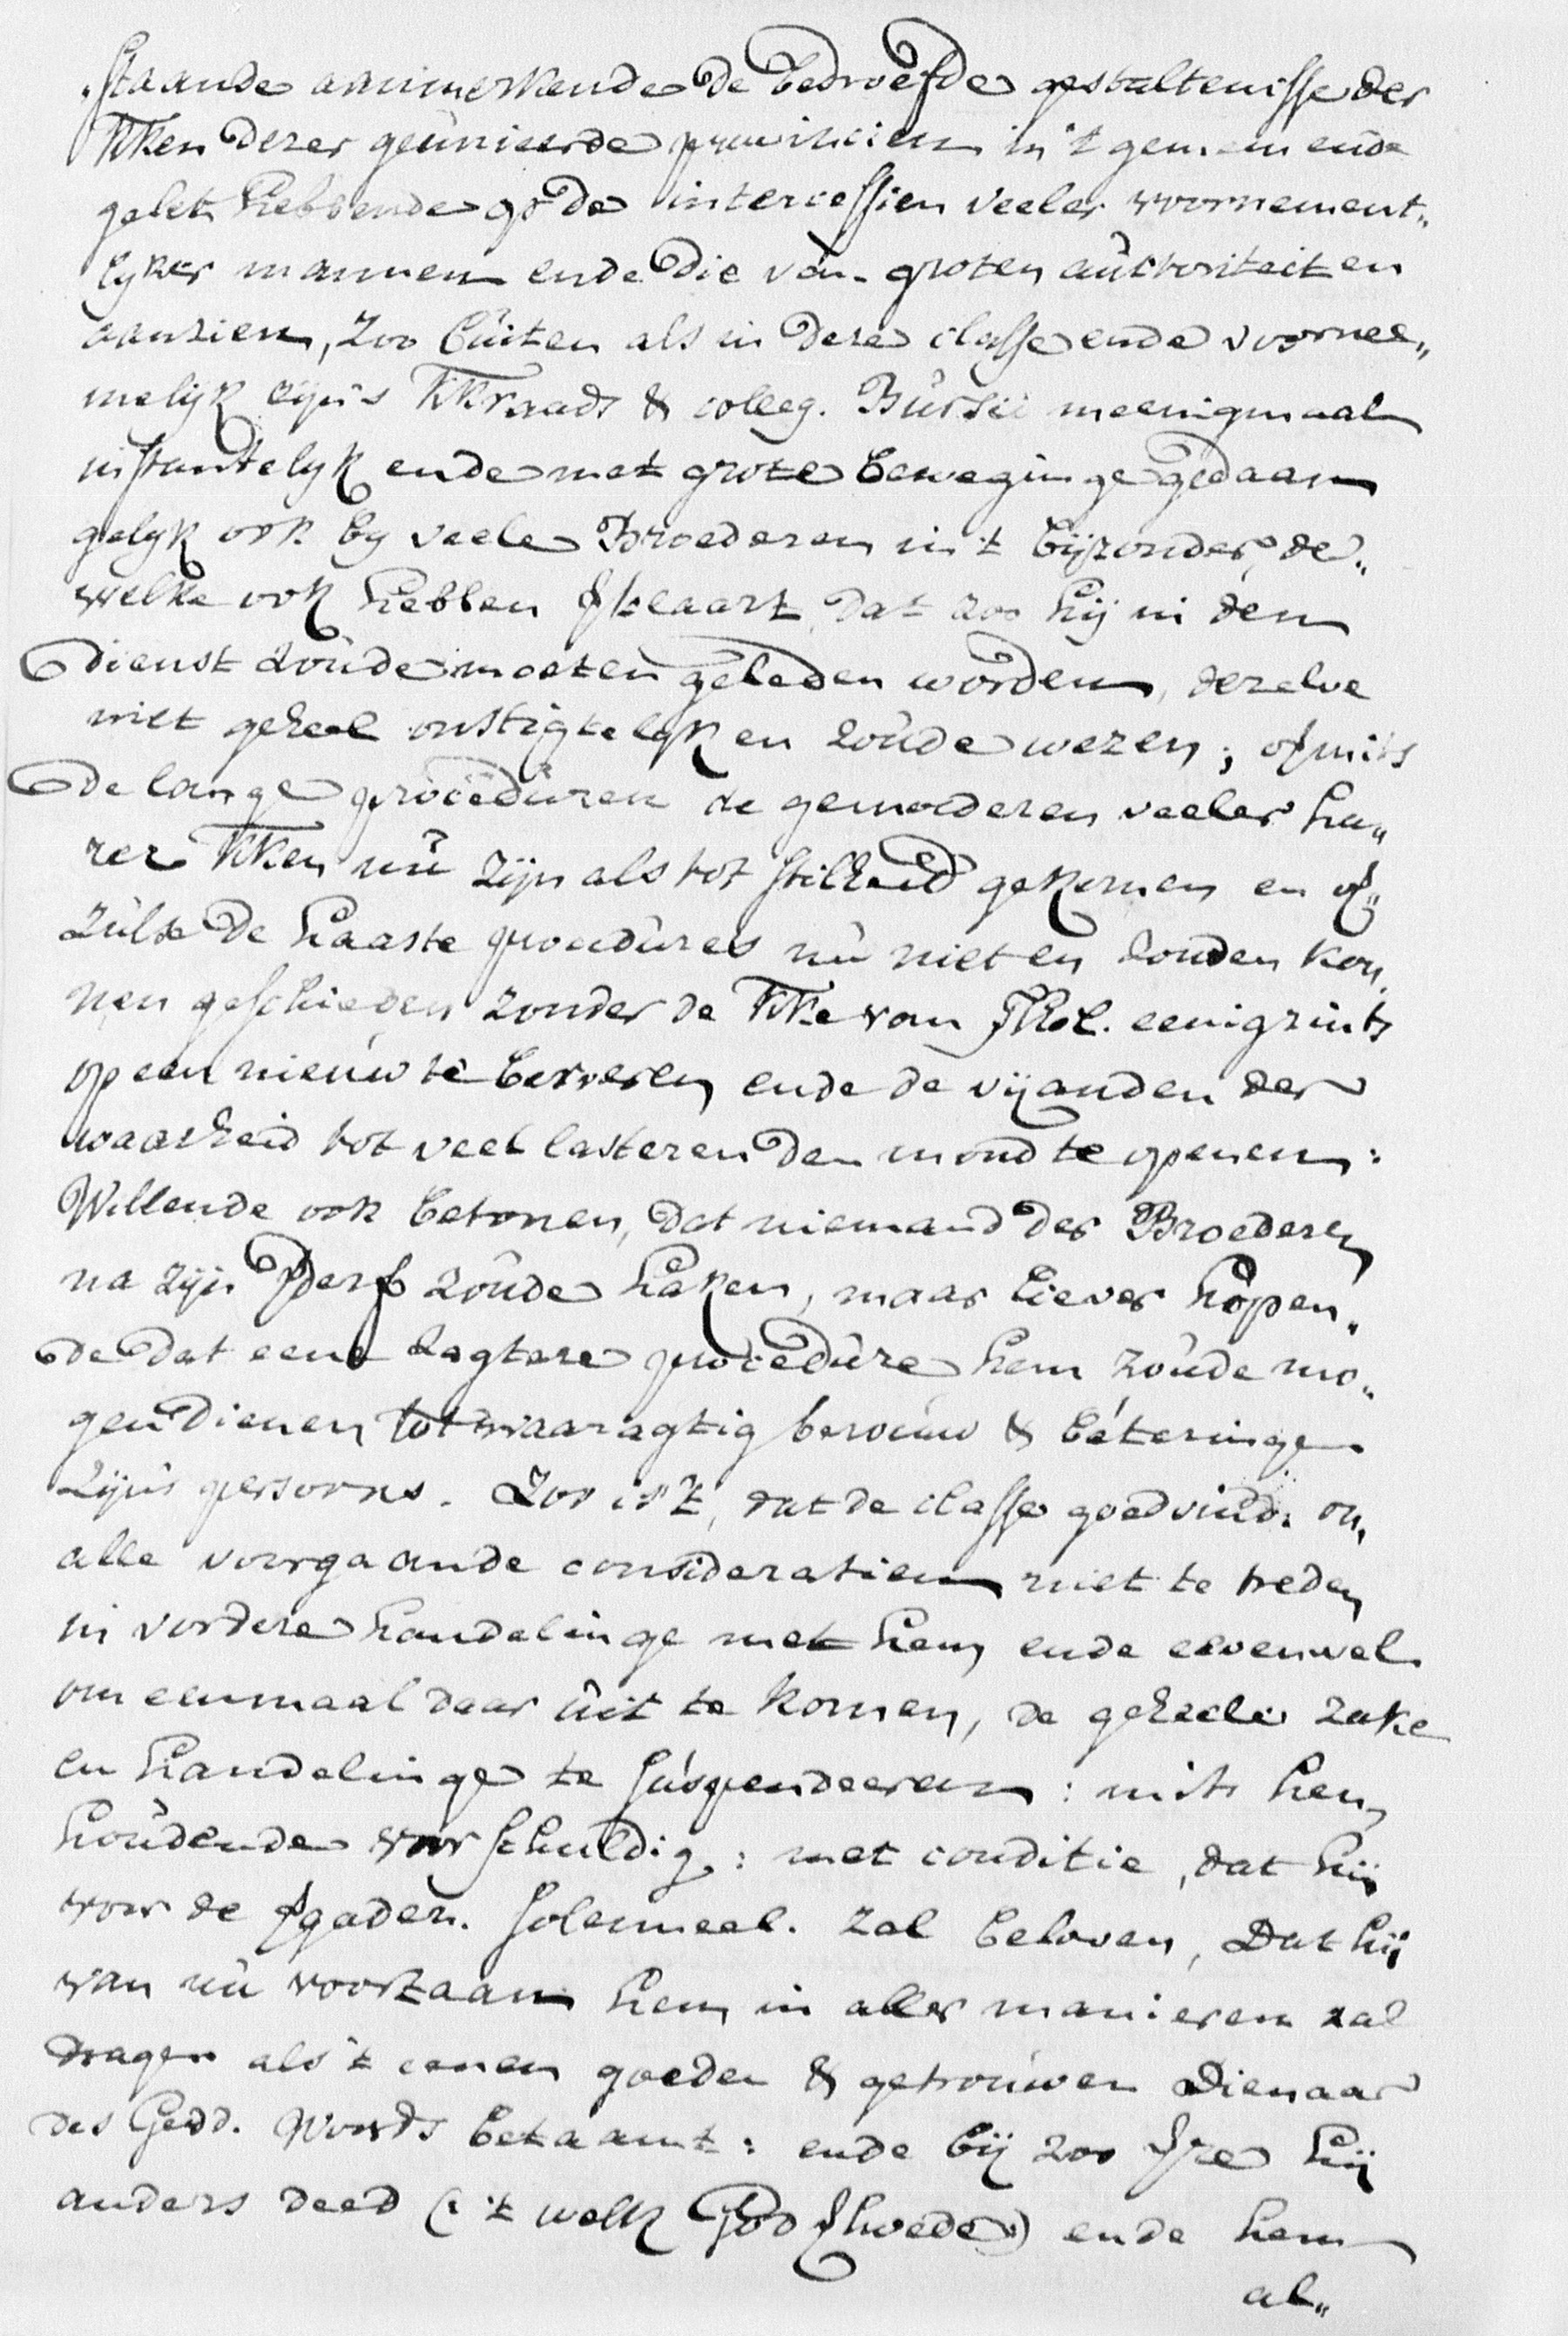 staande aanmerkende de bedroefde gestaltenisse der
KKen dezer geünieerde provincien in 't gemein ende
gelet hebbende op de intercessien veeler voornement„
lyker mannen ende die van groten aûthoriteit en
aanzien, zoo bûiten als in deze classe ende voornee„
melijk zijns KKraads & colleg. Bûrsii meenigmaal
instantelyk ende met grote beweginge gedaan
gelyk ook by veele Broederen in 't bijzonder, de„
welke ook hebben ꝟklaart, dat zoo hij in den
dienst zoûde moeten geleden worden, dezelve
niet geheel onstigtelyk en zoûde wezen; of mits
de lange procedûren de gemoederen veeler ha„
rer KKen nû zijn als tot stilheid gekomen en of„
zulke de haaste procedûres nû niet en zouden kon„
nen geschieden zonder de KKe van Thol. eenigzints
op een nieuw te beroeren ende de vijanden der
waarheid tot veel lasteren den mond te openen:
Willende ook betonen, dat niemand der Broederen
na zijn ꝟderf zoûde haken, maar liever hopen„
de dat eene zagtere procedûre hem zoûde mo„
gen dienen tot waaragtig berouw & béteringe
zijns persoons. Zoo is 't, dat de classe goedvind: om
alle voorgaande consideratien niet te treden
in vordere handelinge met hem ende eevenwel
om eenmaal daar ûit te komen, de geheele zake
en handelinge te sûspendeeren: mits hem
hoûdende voor schuldig: met conditie, dat hij
voor de ꝟgader. solemneel. zal beloven, Dat hij
van nû voortaan hem in aller manieren zal
dragen als 't eenen goeden & getroûwen Dienaar
des Godd. Woords betaamt: ende bij zoo ꝟre hij
anders deed (: 't welk God ꝟhoede:) ende hem
al„